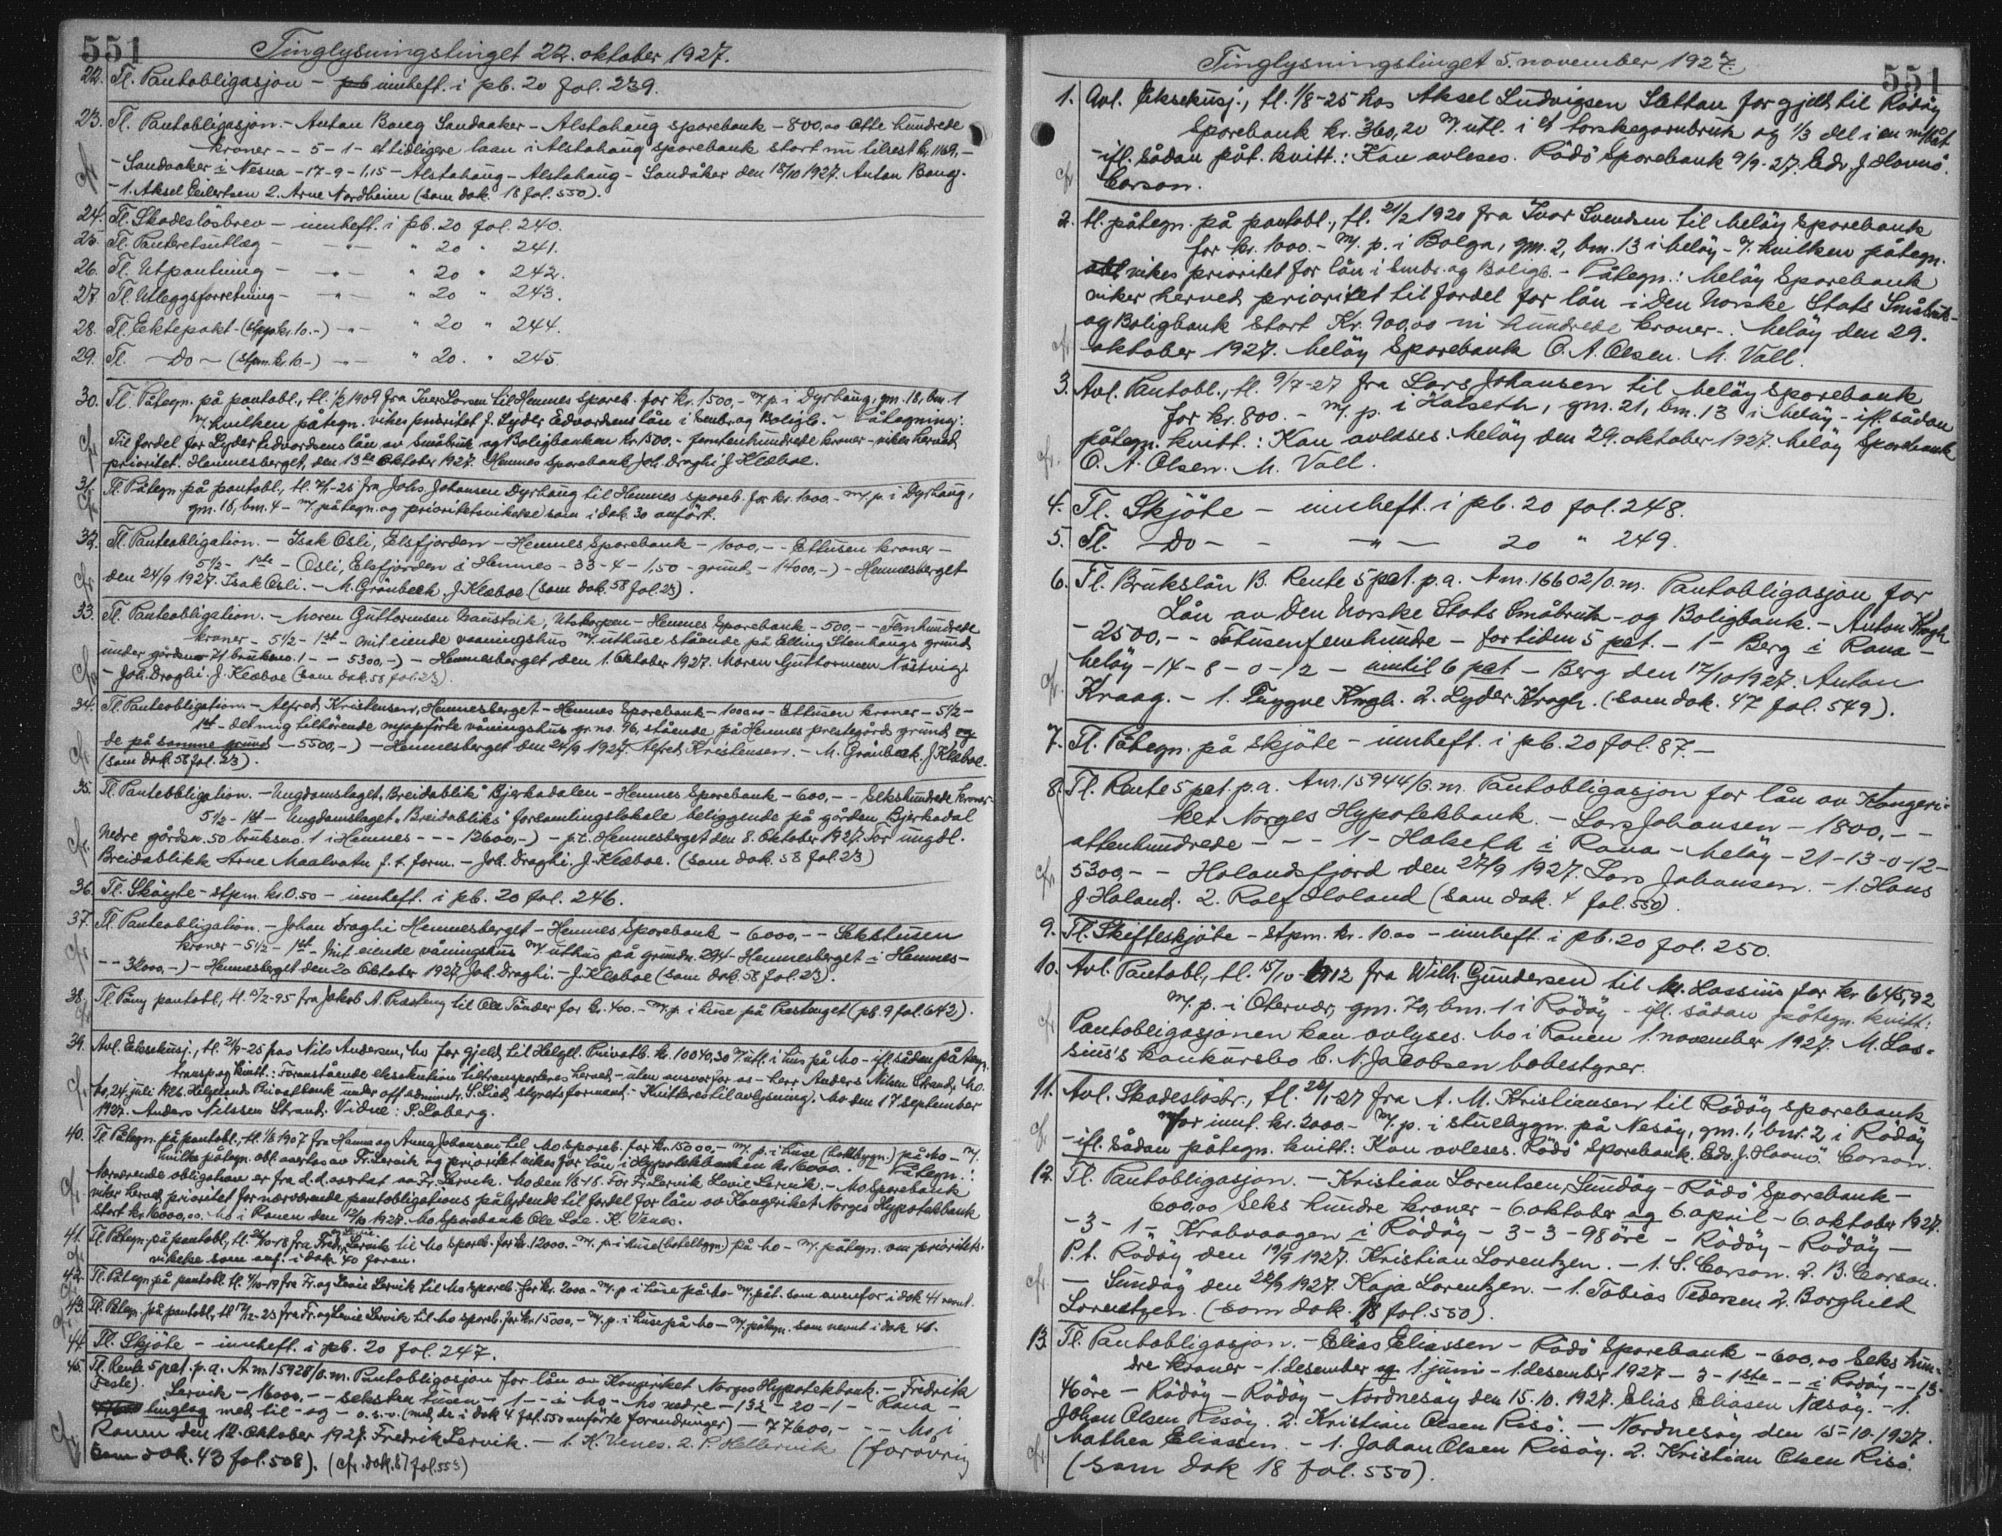 551
Tinglysningstinget 22. oktober 1927.
22. Tl. Pantobligasjon – innheft. i pb. 20 fol. 239.
23. Tl. Pantobligasjon. – Anton Bang Sandaaker – Alstahaug sparebank – 800,00 Otte hundrede
kroner – – 5 – 1 – et tidligere laan i Alstahaug sparebank stort nu tilrest kr. 1169,–
– Sandaaker i Nesna – 17 – 9 – 1,15 – Alstahaug – Alstahaug – Sandåker den 18/10 1927. Anton Bang.
– 1. Aksel Eilertsen 2. Arne Nordheim (som dok. 18 fol. 550).
24. Tl. Skadeslösbrev – innheft. i pb. 20 fol. 240.
25. Tl. Panteretsutlæg – – " – " 20 " 241.
26. Tl. Utpantning – – " – " 20 " 242.
27. Tl. Utleggsforretning – – " – " 20 " 243.
28. Tl. Ektepakt – (stpm kr. 10.–) – " – " 20 " 244.
29. Tl. – Do – (stpm. kr. 10–) – " – " 20. " 245.
30. Tl. Påtegn. på pantobl., tl. 1909 fra Iver Larsen til Hemnes spareb. for kr. 1500,– m/ p. i Dyrhaug, gm. 18, bm. 1
m/ hvilken påtegn. vikes prioritet f. Lyder Edvardsens lån i Småbr. og Boligb. – Påtegning:
Til fordel for Lyder Edvardsens lån av Småbruk og Boligbanken kr. 1500,– femtenhundrede kroner – vikes herved
prioritet. Hemnesberget, den 13de Oktober 1927. Hemnes Sparebank Joh. Draghi J. Klæboe.
31. Tl. Påtegn. på pantobl., tl. fra Johs. Johansen Dyrhaug til Hemnes spareb. for kr. 1000.– m/ p. i Dyrhaug,
gm. 18, bm. 4 – m/ påtegn. og prioritetsvikelse som i dok. 30 anført.
32. Tl. Panteobligation. – Isak Osli, Elsfjorden – Hemnes Sparebank – 1000,– – Ettusen kroner –
5½ – 1ste – (Osli, Elsfjorden i Hemnes – 33 – 4 – 1,50 – grund – 14000,–) – Hemnesberget
den 24/9 1927. Isak Osli. – M. Grönbeck. J. Klæboe (som dok. 58 fol. 23).
33. Tl. Panteobligation. – Maren Guttormsen Naustvik, Utskarpen – Hemnes Sparebank – 500,– – Femhundrede
kroner – 5½ – 1st – mit eiende vaaningshus m/ uthuse stående på Elling Stenhaugs grund
under gårdsno. 71 bruksno. 1 – – 5300,–) – Hemnesberget den 1. Oktober 1927. Maren Guttormsen Nästvig.
– Joh. Draghi. J. Klæboe (som dok. 58 fol. 23).
34. Tl. Panteobligation. – Alfred Kristensen, Hemnesberget – Hemnes Sparebank – 1000.00 – Ettusen kroner – 5½ –
1st – det mig tilhørende nyopførte våningshus gr. no. 96, stående på Hemnes prestegårds grund og
de på samme grund – 5500,–) – Hemnesberget den 24/9 1927. Alfred Kristensen. – M. Grönbeck. J. Klæboe.
(som dok. 58 fol. 23).
35. Tl. Panteobligation. – Ungdomslaget „Breidablik" Bjerkadalen – Hemnes Sparebank – 600,– – Sekshundrede kroner –
5½ – 1st – Ungdomslaget „Breidabliks" forsamlingslokale beliggende på gården Bjerkadal
nedre gårdsn. 50 bruksno. 1 i Hemnes – – – 12600,–) – p.t. Hemnesberget den 8. Oktober 1927. For ungdl.
Breidablikk Arne Maalvatn f. t. form. – Joh. Draghi. J. Klæboe. (som dok. 58 fol. 23)
36. Tl. Skøyte – stpm. kr. 0.50 – innheft. i pb. 20 fol. 246.
37. Tl. Panteobligation. – Johan Draghi Hemnesberget – Hemnes Sparebank – 6000,– – Sekstusen
kroner – 5½ – 1st – mit eiende våningshus m/ uthus på grundn. 294 – Hemnesberget i Hemnes –
– – 32000,–) – Hemnesberget den 20 Oktober 1927 Joh. Draghi. – J. Klæboe (som dok. 58 fol. 23).
38. Tl. Påny pantobl., tl. 15/2-95 fra Jakob A. til Ole Tønder for kr. 400.– m/ p. i huse på (pb. 9 fol. 642).
39. Avl. Eksekusj., tl. 21/9-25 hos Nils Andersen, Mo for gjeld til Helgel. Privatb. kr. 10040,30 m/ utl. i hus på Mo – ifl. sådan påtegn.
transp. og kvitt.: Foranstående eksekution tiltransporteres herved – uten ansvar for os – herr Anders Nilsen Strand, Mo.
Mo, 24. juli 1926. Helgeland Privatbank under off. administr. S. styrets formand. – Kvitteres til avlysning. Mo den 17 september
1927. Anders Nilssen Strand. Vidne: S. Loberg.
40. Tl. Påtegn. på pantobl., tl. 1907 fra Hanna og Anna Johansen til Mo spareb. for kr. 15000,– m/ p. i huse (hotelbygn.) på Mo – m/
hvilke påtegn. obl. overtas av Fr. Lervik og prioritet vikes for lån i Hypotekbanken kr. 16000. – Påtegn.:
Nærværende obligation er fra d. d. overtat av Fr. Lervik. Mo den For Fr. Lervik Lovie Lervik. – Mo Sparebank
viker herved prioritet for nærværende pantobligations pålydende til fordel for lån av Kongeriket Norges Hypotekbank
stort kr. 16000,00. Mo i Ranen den 12/10 1927. Mo Sparebank Ole Lie. K. Venes.
41. Tl. Påtegn. på pantobl., tl. fra Fredr. Lervik til Mo spareb. for kr. 12000.– m/ p. i huse (hotelbygn.) på Mo – m/ påtegn. om prioritets-
vikelse som anf. i dok. 40 foran.
42. Tl. Påtegn. på pantobl. tl. fra Fr. og Lovie Lervik til Mo spareb. for kr. 2000.– m/ p. i huse på Mo – m/ påt. som ovenfor i dok. 41 nevnt.
43. Tl. Påtegn. på pantobl., tl. fra Fr. og Lovie Lervik til Mo spareb. for kr. 15000,– m/ p. i huse på Mo – m/ påtegn. som nevnt i dok. 41.
44. Tl. Skjøte – innheft. i pb. 20 fol. 247.
45. Tl. Rente 5 pct. p. a. A. nr. 15928/0. m. Pantobligasjon for lån av Kongeriket Norges Hypotekbank. – Fredrik
Lervik – 16000.– – seksten tusen – 1 – i Mo – Mo nedre – 132 – 20 – 1 – Rana –
tinglag med til – og – o. s. v. (med de i dok. 4 fol. 550 anførte forandringer) – 77600,– – Mo i
Ranen den 12. Oktober 1927. Fredrik Lervik. – 1. K. Venes. 2. P. (forøvrig
som dok. 43 fol. 508). (cfr. dok. 87 fol. 553)
Tinglysningstinget 5. november 1927.
551
1. Avl. Eksekusj., tl. 1/8-25 hos Aksel Ludvigsen Slettan for gjeld til Rödöy
Sparebank kr. 360,20 m/ utl. i et torskegarnbruk og 1/3 del i en m/båt
– ifl. sådan påt. kvitt.: Kan avleses. Rödö Sparebank 9/9-27. Edv. J. Havnö.
Corson.
2. Tl. påtegn. på pantobl., tl. 21/2 1920 fra Ivar Svendsen til Meløy Sparebank
for kr. 1000.– m/ p. i Bolga, gm. 2, bm. 13 i Meløy – v/ hvilken påtegn.
vikes prioritet for lån i Småbr. og Boligb. – Påtegn.: Meløy Sparebank
viker herved prioritet til fordel for lån i Den Norske Stats Småbruk-
og Boligbank stort Kr. 900,00 ni hundrede kroner. – Meløy den 29.
oktober 1927. Meløy Sparebank O. A. Olsen. M. Vall.
3. Avl. Pantobl., tl. 9/7-27 fra Lars Johansen til Meløy Sparebank
for kr. 800.– m/ p. i Halseth, gm. 21, bm. 13 i Meløy – ifl. sådan
påtegn. kvitt.: Kan avleses. Meløy den 29. oktober 1927. Meløy Sparebank
O. A. Olsen. M. Vall.
4. Tl. Skjöte – innheft. i pb. 20 fol. 248.
5. Tl. – Do – – – " – 20 " 249.
6. Tl. Brukslån B. Rente 5 pct. p. a. A nr. 16602/0. m. Pantobligasjon for
Lån av Den Norske Stats Småbruk- og Boligbank. – Anton Krogh
– 2500,– – totusenfemhundre – for tiden 5 pct. – 1 – Berg i Rana –
Meløy – 14 – 8 – 0 – 12 – inntil 6 pct – Berg den 17/10 1927. Anton
Kraag. – 1. Trygve Krogh. 2. Lyder Krogh. (som dok. 47 fol. 549).
7. Tl. Påtegn. på skjöte – innheft. i pb. 20 fol. 87. –
8. Tl. Rente 5 pct. p. a. A nr. 15944/0. m. Pantobligasjon for lån av Kongeri-
ket Norges Hypotekbank. – Lars Johansen – 1800,– –
attenhundrede – – – 1 – Halseth i Rana – Meløy – 21 – 13 – 0 – 12 –
5300,– – Holandsfjord den 27/9 1927. Lars Johansen. – 1. Hans
J. Haland. 2. Rolf Holand (som dok. 4 fol. 550).
9. Tl. Skifteskjöte – stpm. kr. 10.00 – innheft. i pb. 20 fol. 250.
10. Avl. Pantobl., tl. 15/10-1912 fra Wilh. Gundersen til M. Lassius for kr 645,92
m/ p. i Oterver, gm. 70, bm. 1 i Rödöy – ifl. sådan påtegn. kvitt.:
Pantobligasjonen kan avlyses. Mo i Ranen 1. november 1927. M. Las-
sius's konkursbo C. N. Jacobsen bobestyrer.
11. Avl. Skadeslösbr., tl. 26/1-27 fra A. M. Kristiansen til Rödöy sparebank
for innt. kr. 2000.– m/ p. i stuebygn. på Nesöy, gm. 1, bnr. 2 i Rödöy
– ifl. sådan påtegn. kvitt.: Kan avleses. Rödö Sparebank. Edv. J. Havnö. Corson.
12. Tl. Pantobligasjon. – Kristian Lorentsen, Sundøy – Rödö Sparebank –
600,00 Seks hundre kroner – 6. oktober og 6. april – 6. oktober 1927.
– 3 – 1 – Krabvaagen i Rödöy – 3 – 3 – 98 öre – Rödöy – Rödöy –
P.t. Rödöy den 19/9 1927. Kristian Lorentzen. – 1. S. Corson. 2. B. Corson.
– Sundöy den 26/9 1927. Kaja Lorentzen. – 1. Tobias Pedersen 2. Borghild
Lorentzen. (som dok. 18 fol. 550).
13. Tl. Pantobligasjon. – Elias Eliassen – Rödö Sparebank – 600,00 Seks hun-
dre kroner – 1. desember og 1 juni – 1. desember 1927 – 3 – 1ste – – i Rödöy – – 13 –
46 öre – Rödöy – Rödöy – Nordnesøy den 15. 10. 1927. Elias Eliasen Næsøy. – 1.
Johan Olsen Risöy. 2. Kristian Olsen Risö. – Nordnesøy den 15-10-1927.
Mathea Eliassen. – 1. Johan Olsen Risöy. 2. Kristian Olsen Risö.
(som dok 18 fol. 550).